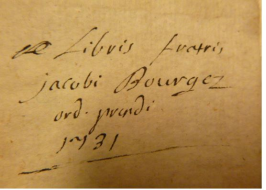 ex Libris fratris
jacobi Bourgez
ord. prædi
1731